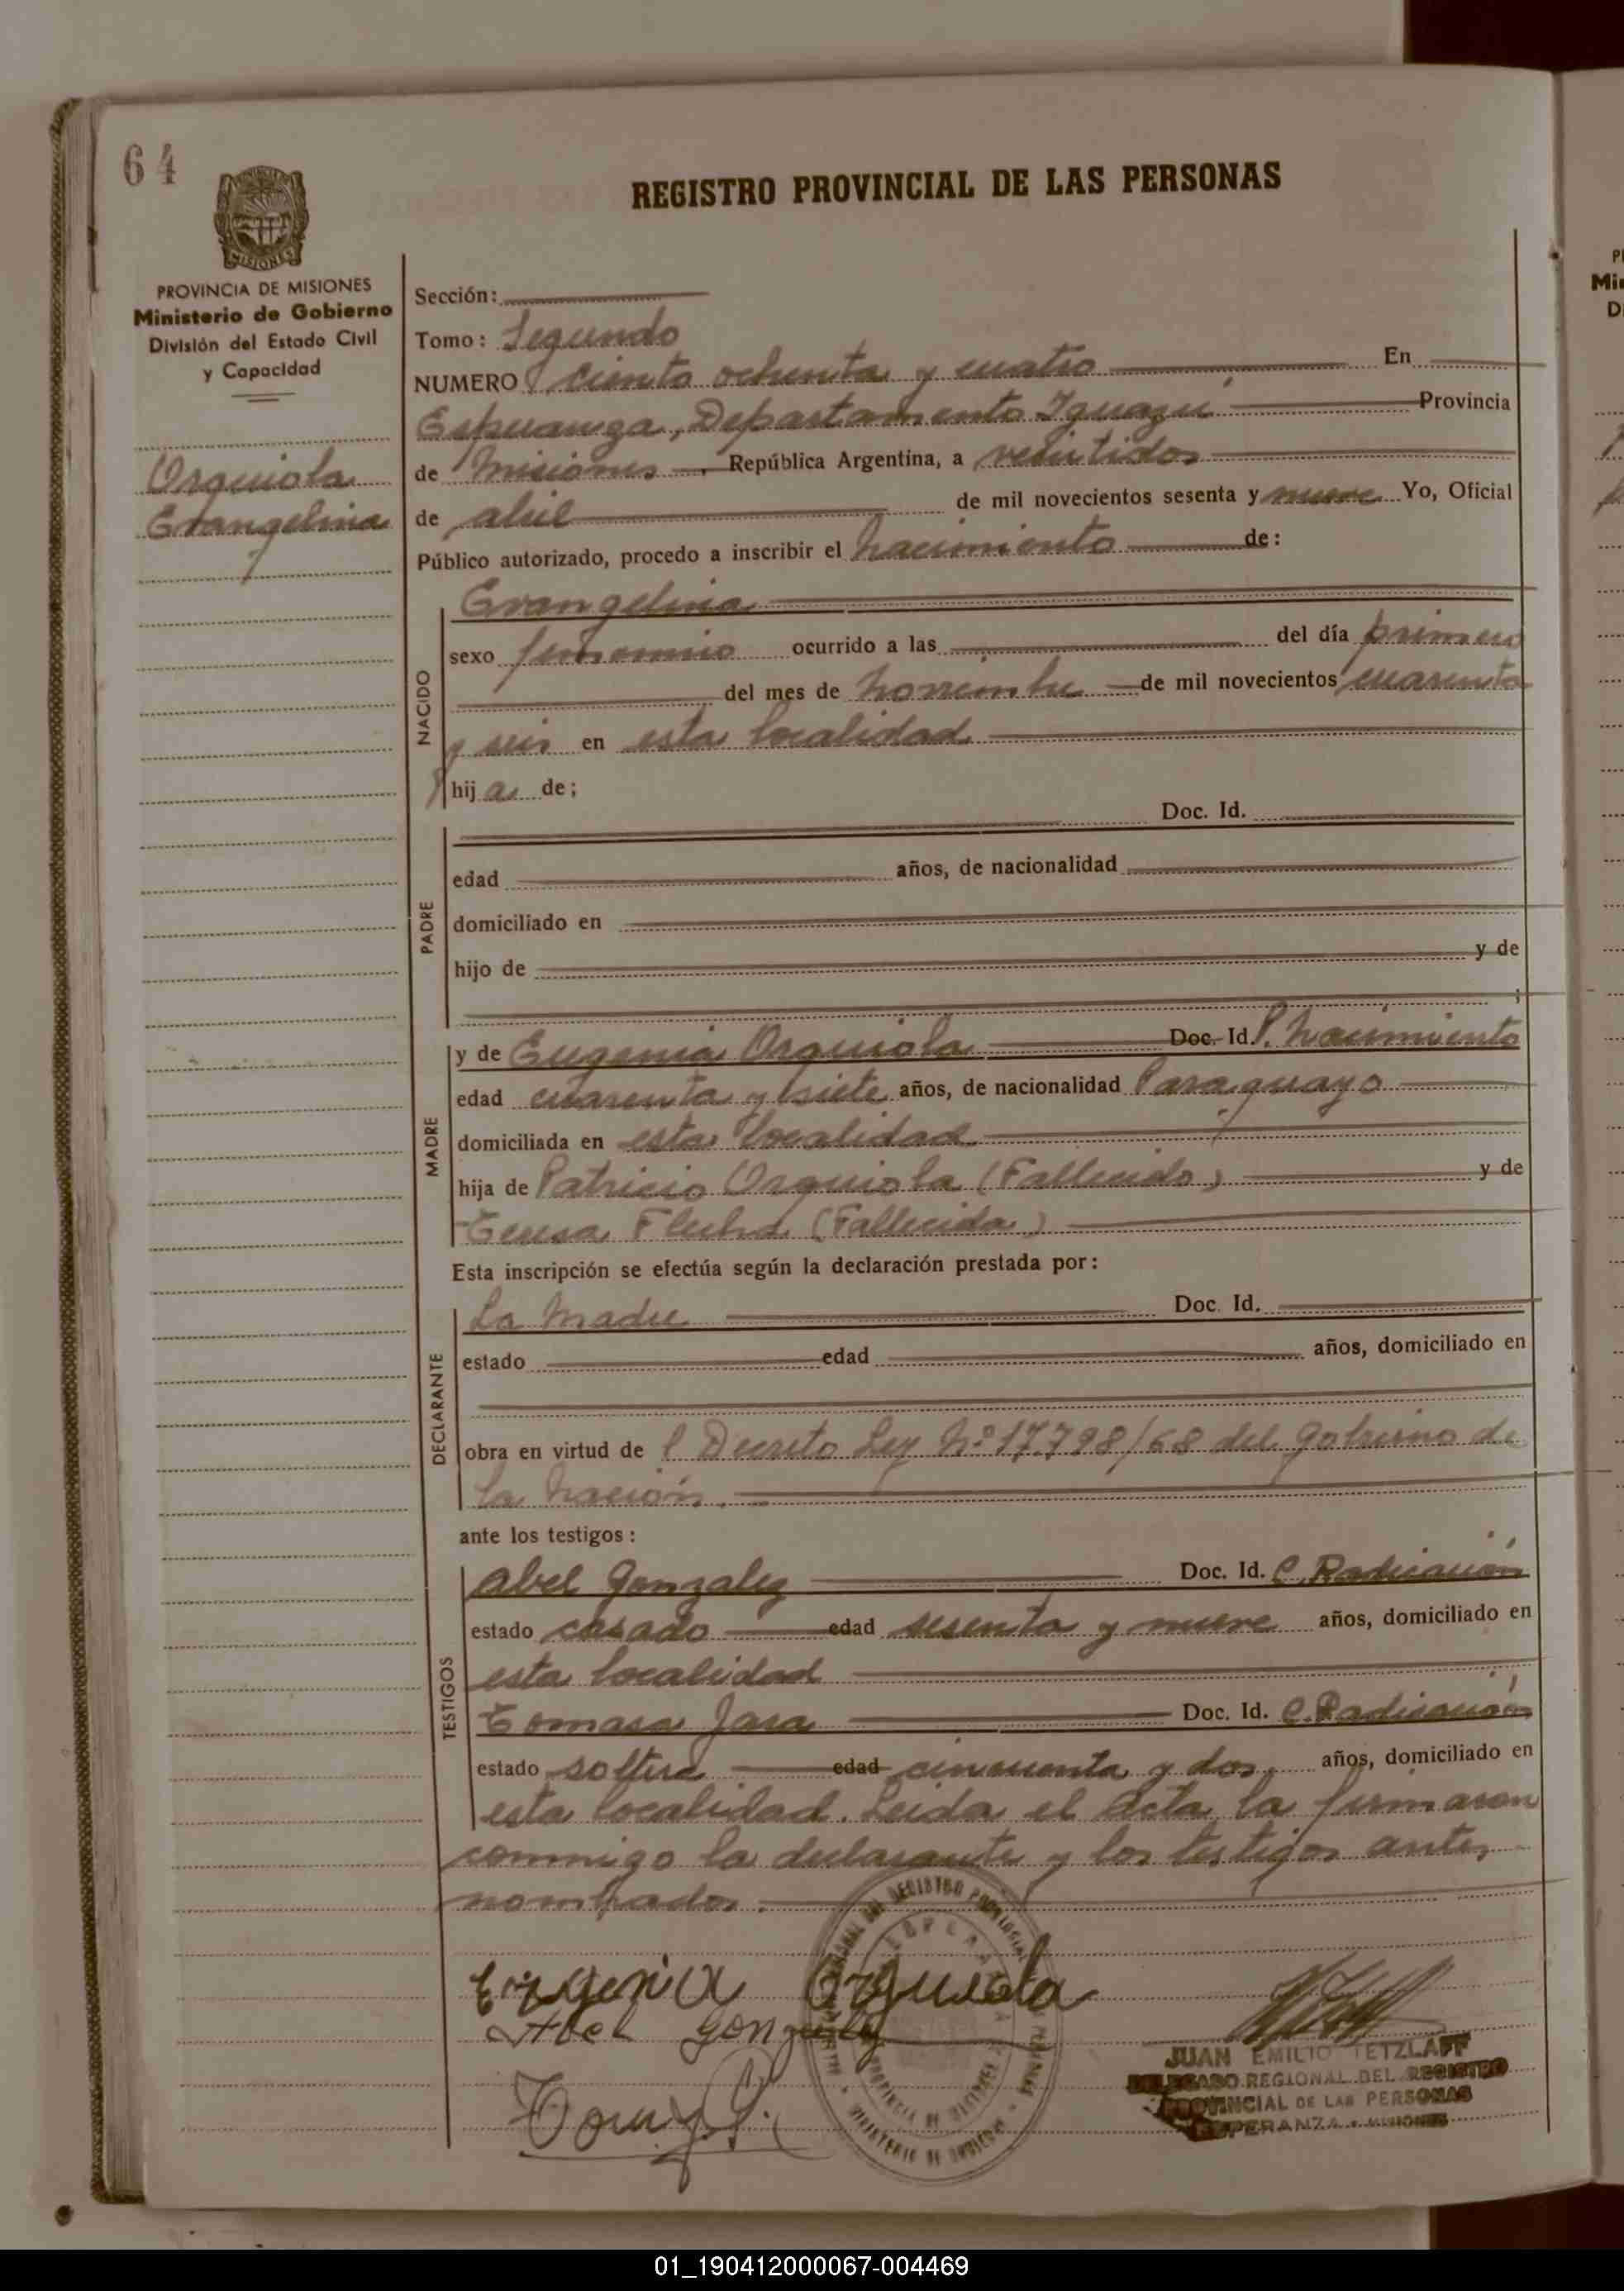 64
REGISTRO PROVINCIAL DE LAS PERSONAS
MISIONES
PROVINCIA DE MISIONES
Ministerio de Gobierno
División del Estado Civil
y Capacidad
Orquiola
Evangelina
Sección:
Tomo: Segundo
NUMERO ciento ochenta y cuatro En
Esperanza, Departamento Iguazú Provincia
de Misiones, República Argentina, a veintidos
de abril de mil novecientos sesenta y nueve Yo, Oficial
Público autorizado, procedo a inscribir el nacimiento de:
NACIDO
Evangelina
sexo femenino ocurrido a las del día primero
del mes de noviembre de mil novecientos cuarenta
y seis en esta localidad
hij a de;
PADRE
Doc. Id.
edad años, de nacionalidad
domiciliado en
hijo de y de
;
MADRE
y de Eugenia Orquiola Doc. Id. P. Nacimiento
edad cuarenta y siete años, de nacionalidad Paraguayo
domiciliada en esta localidad
hija de Patricio Orquiola (Fallecido) y de
Teresa Flecha (Fallecida)
Esta inscripción se efectúa según la declaración prestada por:
DECLARANTE
La Madre Doc. Id.
estado edad años, domiciliado en
obra en virtud de l Decreto Ley Nº 17.798/68 del Gobierno de
la Nación.
ante los testigos:
TESTIGOS
Abel Gonzalez Doc. Id. C. Radicación
estado casado edad sesenta y nueve años, domiciliado en
esta localidad
Tomasa Jara Doc. Id. C. Radicación
estado soltera edad cincuenta y dos años, domiciliado en
esta localidad. Leida el acta la firmaron
conmigo la declarante y los testigos antes
nombrados.
Eugenia Orquiola
Abel Gonzalez
JUAN EMILIO TETZLAFF
DELEGADO REGIONAL DEL REGISTRO
PROVINCIAL DE LAS PERSONAS
ESPERANZA - MISIONES
01_190412000067-004469